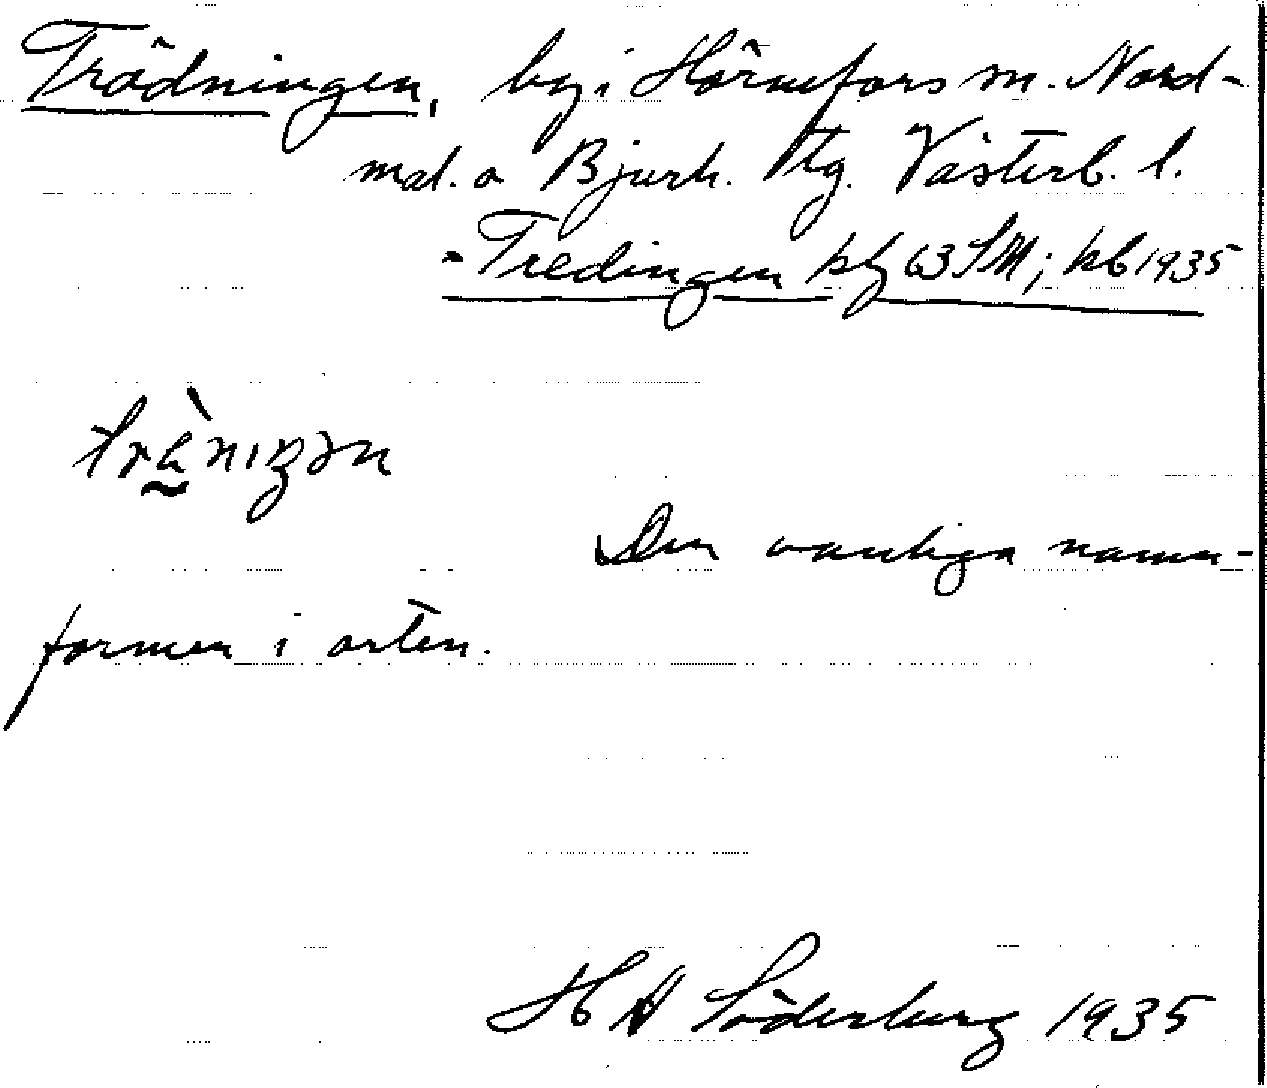 Trädningen, by i Hörnefors sn. Nord-
mal. o Bjurh. tg. Västerb. l.
- Tredingen kbl 63 SM; kb 1935
Den vanliga namn-
formen i orten.
H A Söderberg 1935